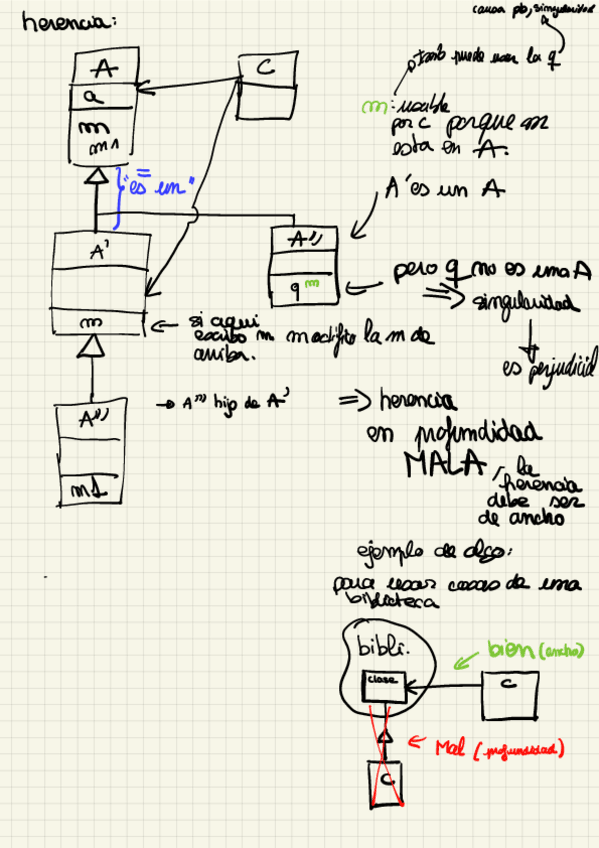 causa pb, singularidad
herencia:
A
a
m
m1
C
también puede usar la q
m: usable
por C porque m
esta en A.
"es un"
A' es un A
A'
m
A''
q m
pero q no es una A
=> singularidad
es perjudicial
← si aqui
escribo m modifico la m de
arriba.
A'''
m1
→ A''' hijo de A'
=> herencia
en profundidad
MALA, la
herencia
debe ser
de ancho
ejemplo de algo:
para usar cosas de una
biblioteca
bibli.
clase
bien (ancho)
C
Mal (profundidad)
C